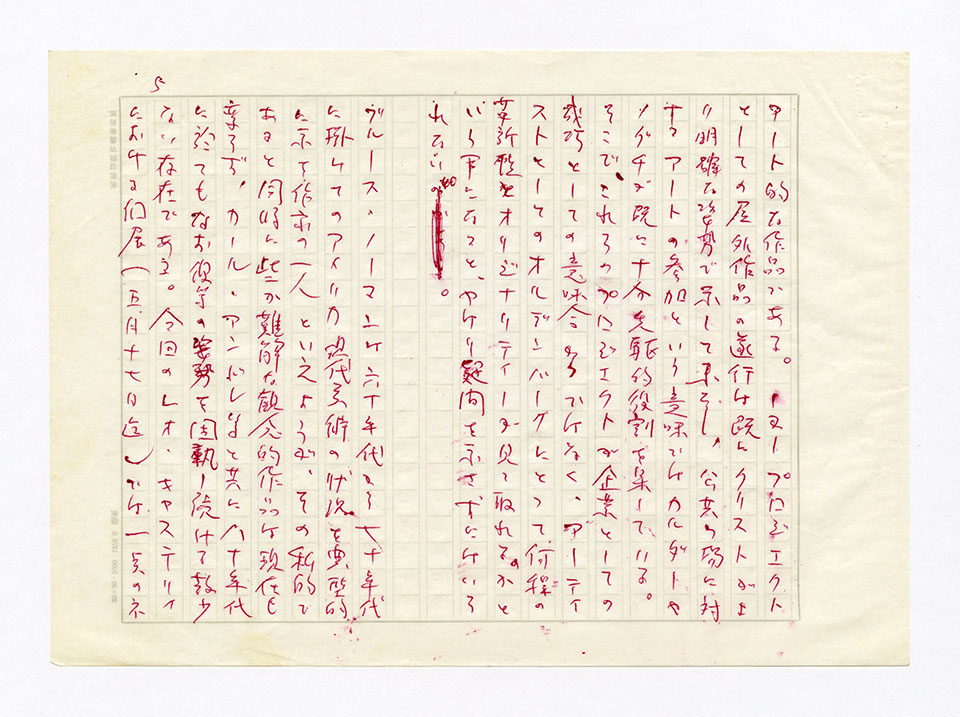 アート的な作品である。又一プロジェクト
としての屋外作品の遂行は既にクリストがよ
り明確な姿勢で示して来たし、公共の場に対
するアートの参加という意味ではカルダーや
ノグチが既に十分先駆的役割を果している。
そこで、これらのプロジェクトが企業としての
技巧としての意味合のみではなく、アーティ
ストとしてのオルデンバーグにとって何程の
革新性とオリジナリティーが見て取れるのかと
いう事になると、やはり疑問を示さずにはいら
れない。
ブルース・ノーマンは六十年代から七十年代
に掛けてのアメリカ現代美術の状況を典型的
に示す作家の一人といえようが、その私的で
あると同時に些か難解な観念的作品は現在も
変らず、カール・アンドレ等と共に八十年代
に於てもなお彼等の姿勢を固執し続ける数少
ない存在である。今回のレオ・キャステリィ
における個展（五月十七日迄）では一点のネ
5